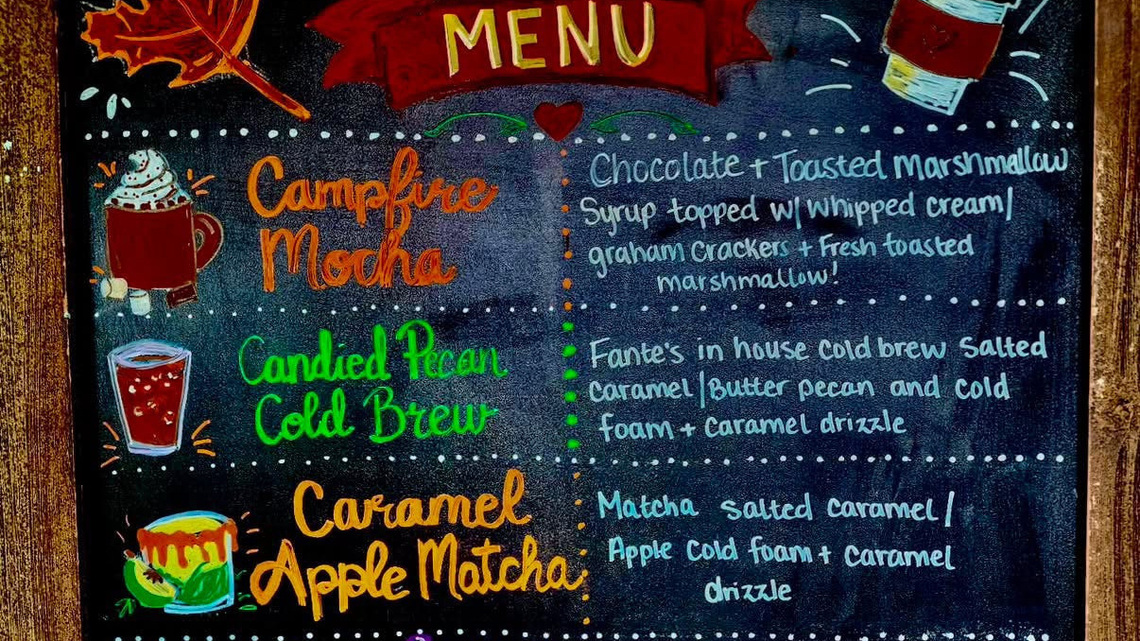 MENU
Campfire
Mocha
Chocolate + Toasted Marshmallow
Syrup topped w/ whipped cream/
graham crackers + Fresh toasted
marshmallow!
Candied Pecan
Cold Brew
Fante's in house cold brew salted
caramel/Butter pecan and cold
foam + caramel drizzle
Caramel
Apple Matcha
Matcha salted caramel/
Apple cold foam + caramel
drizzle